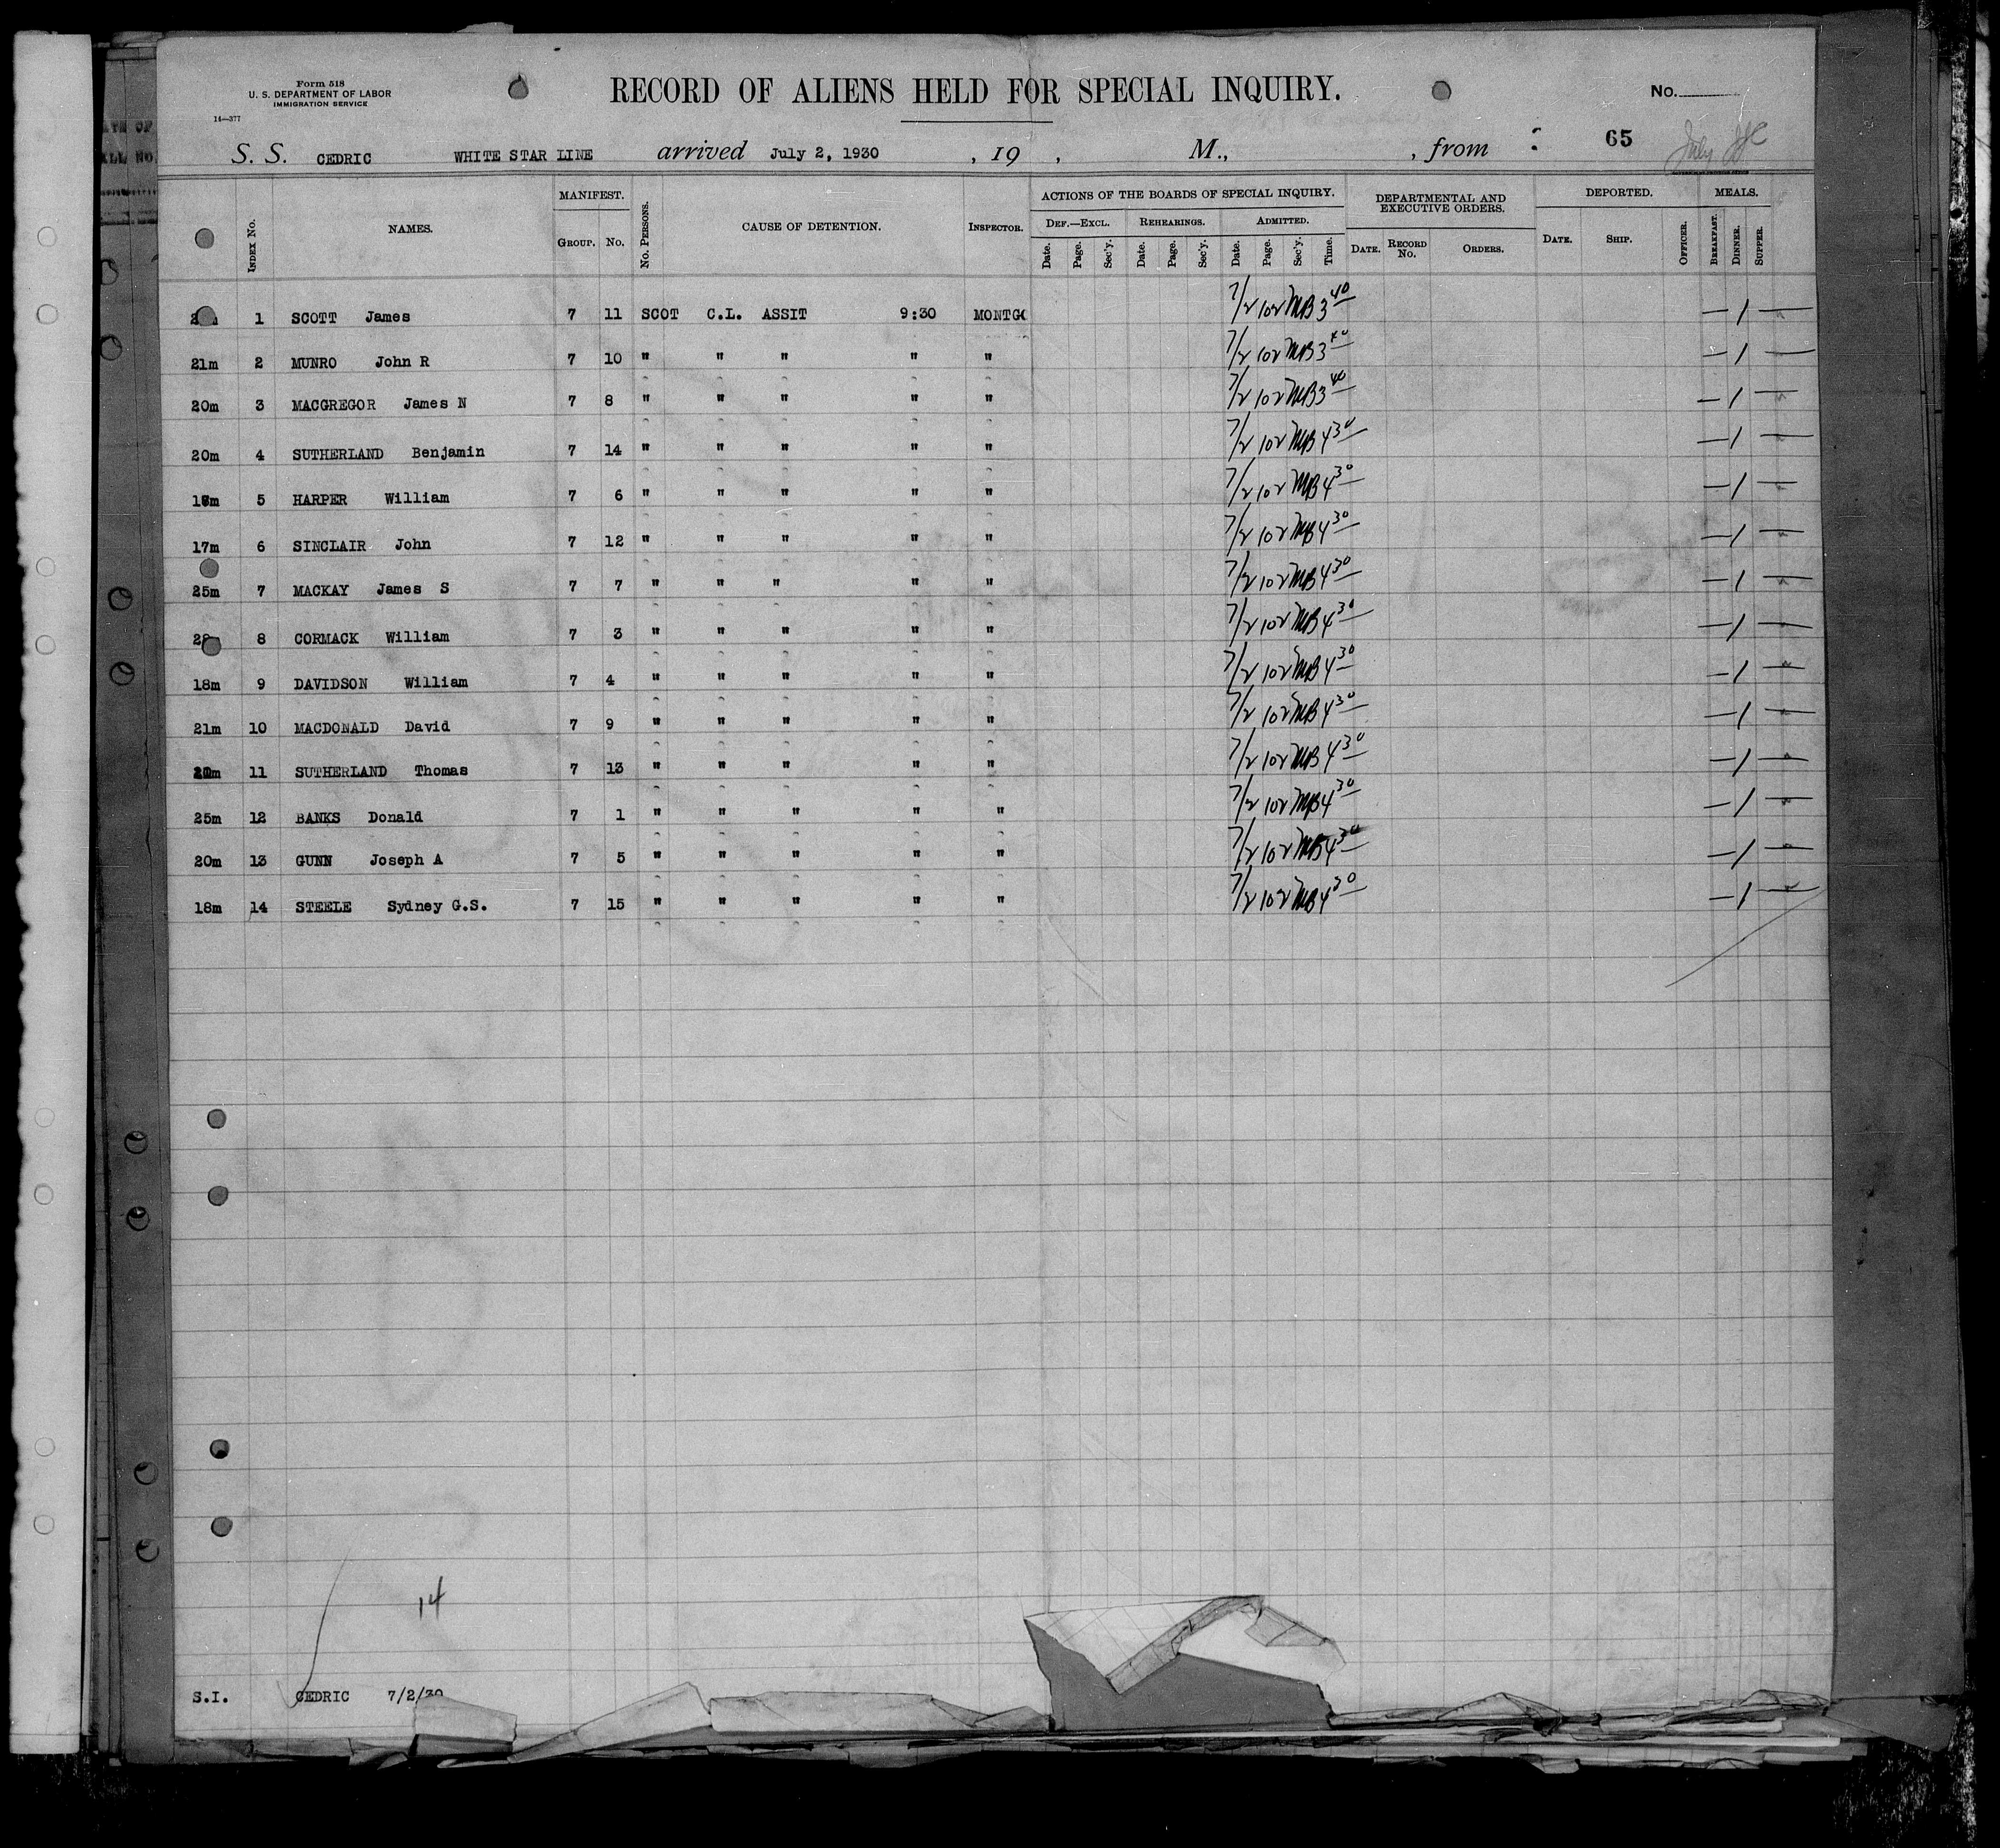 Form 518
U. S. DEPARTMENT OF LABOR
IMMIGRATION SERVICE
14—377
RECORD OF ALIENS HELD FOR SPECIAL INQUIRY.
No.
65
July
S. S. CEDRIC WHITE STAR LINE arrived July 2, 1930 , 19 , M., , from
INDEX No. NAMES. MANIFEST. GROUP. No. No. PERSONS. CAUSE OF DETENTION. INSPECTOR. ACTIONS OF THE BOARDS OF SPECIAL INQUIRY. DEPARTMENTAL AND EXECUTIVE ORDERS. DEPORTED. MEALS.
DEF.—EXCL. REHEARINGS. ADMITTED.
Date. Page. Sec'y. Date. Page. Sec'y. Date. Page. Sec'y. Time. DATE. RECORD No. ORDERS. DATE. SHIP. OFFICER. BREAKFAST. DINNER. SUPPER.
1 SCOTT James 7 11 SCOT C.L. ASSIT 9:30 MONTG 7/2 102 MB 3 40 — 1 —
21m 2 MUNRO John R 7 10 " " " " " 7/2 102 MB 3 40 — 1 —
20m 3 MACGREGOR James N 7 8 " " " " " 7/2 102 MB 3 40 — 1 —
20m 4 SUTHERLAND Benjamin 7 14 " " " " " 7/2 102 MB 4 30 — 1 —
5 HARPER William 7 6 " " " " " 7/2 102 MB 4 30 — 1 —
17m 6 SINCLAIR John 7 12 " " " " " 7/2 102 MB 4 30 — 1 —
25m 7 MACKAY James S 7 7 " " " " " 7/2 102 MB 4 30 — 1 —
8 CORMACK William 7 3 " " " " " 7/2 102 MB 4 30 — 1 —
18m 9 DAVIDSON William 7 4 " " " " " 7/2 102 MB 4 30 — 1 —
21m 10 MACDONALD David 7 9 " " " " " 7/2 102 MB 4 30 — 1 —
11 SUTHERLAND Thomas 7 13 " " " " " 7/2 102 MB 4 30 — 1 —
25m 12 BANKS Donald 7 1 " " " " " 7/2 102 MB 4 30 — 1 —
20m 13 GUNN Joseph A 7 5 " " " " " 7/2 102 MB 4 30 — 1 —
18m 14 STEELE Sydney G.S. 7 15 " " " " " 7/2 102 MB 4 30 — 1 —
14
S.I. CEDRIC 7/2/30